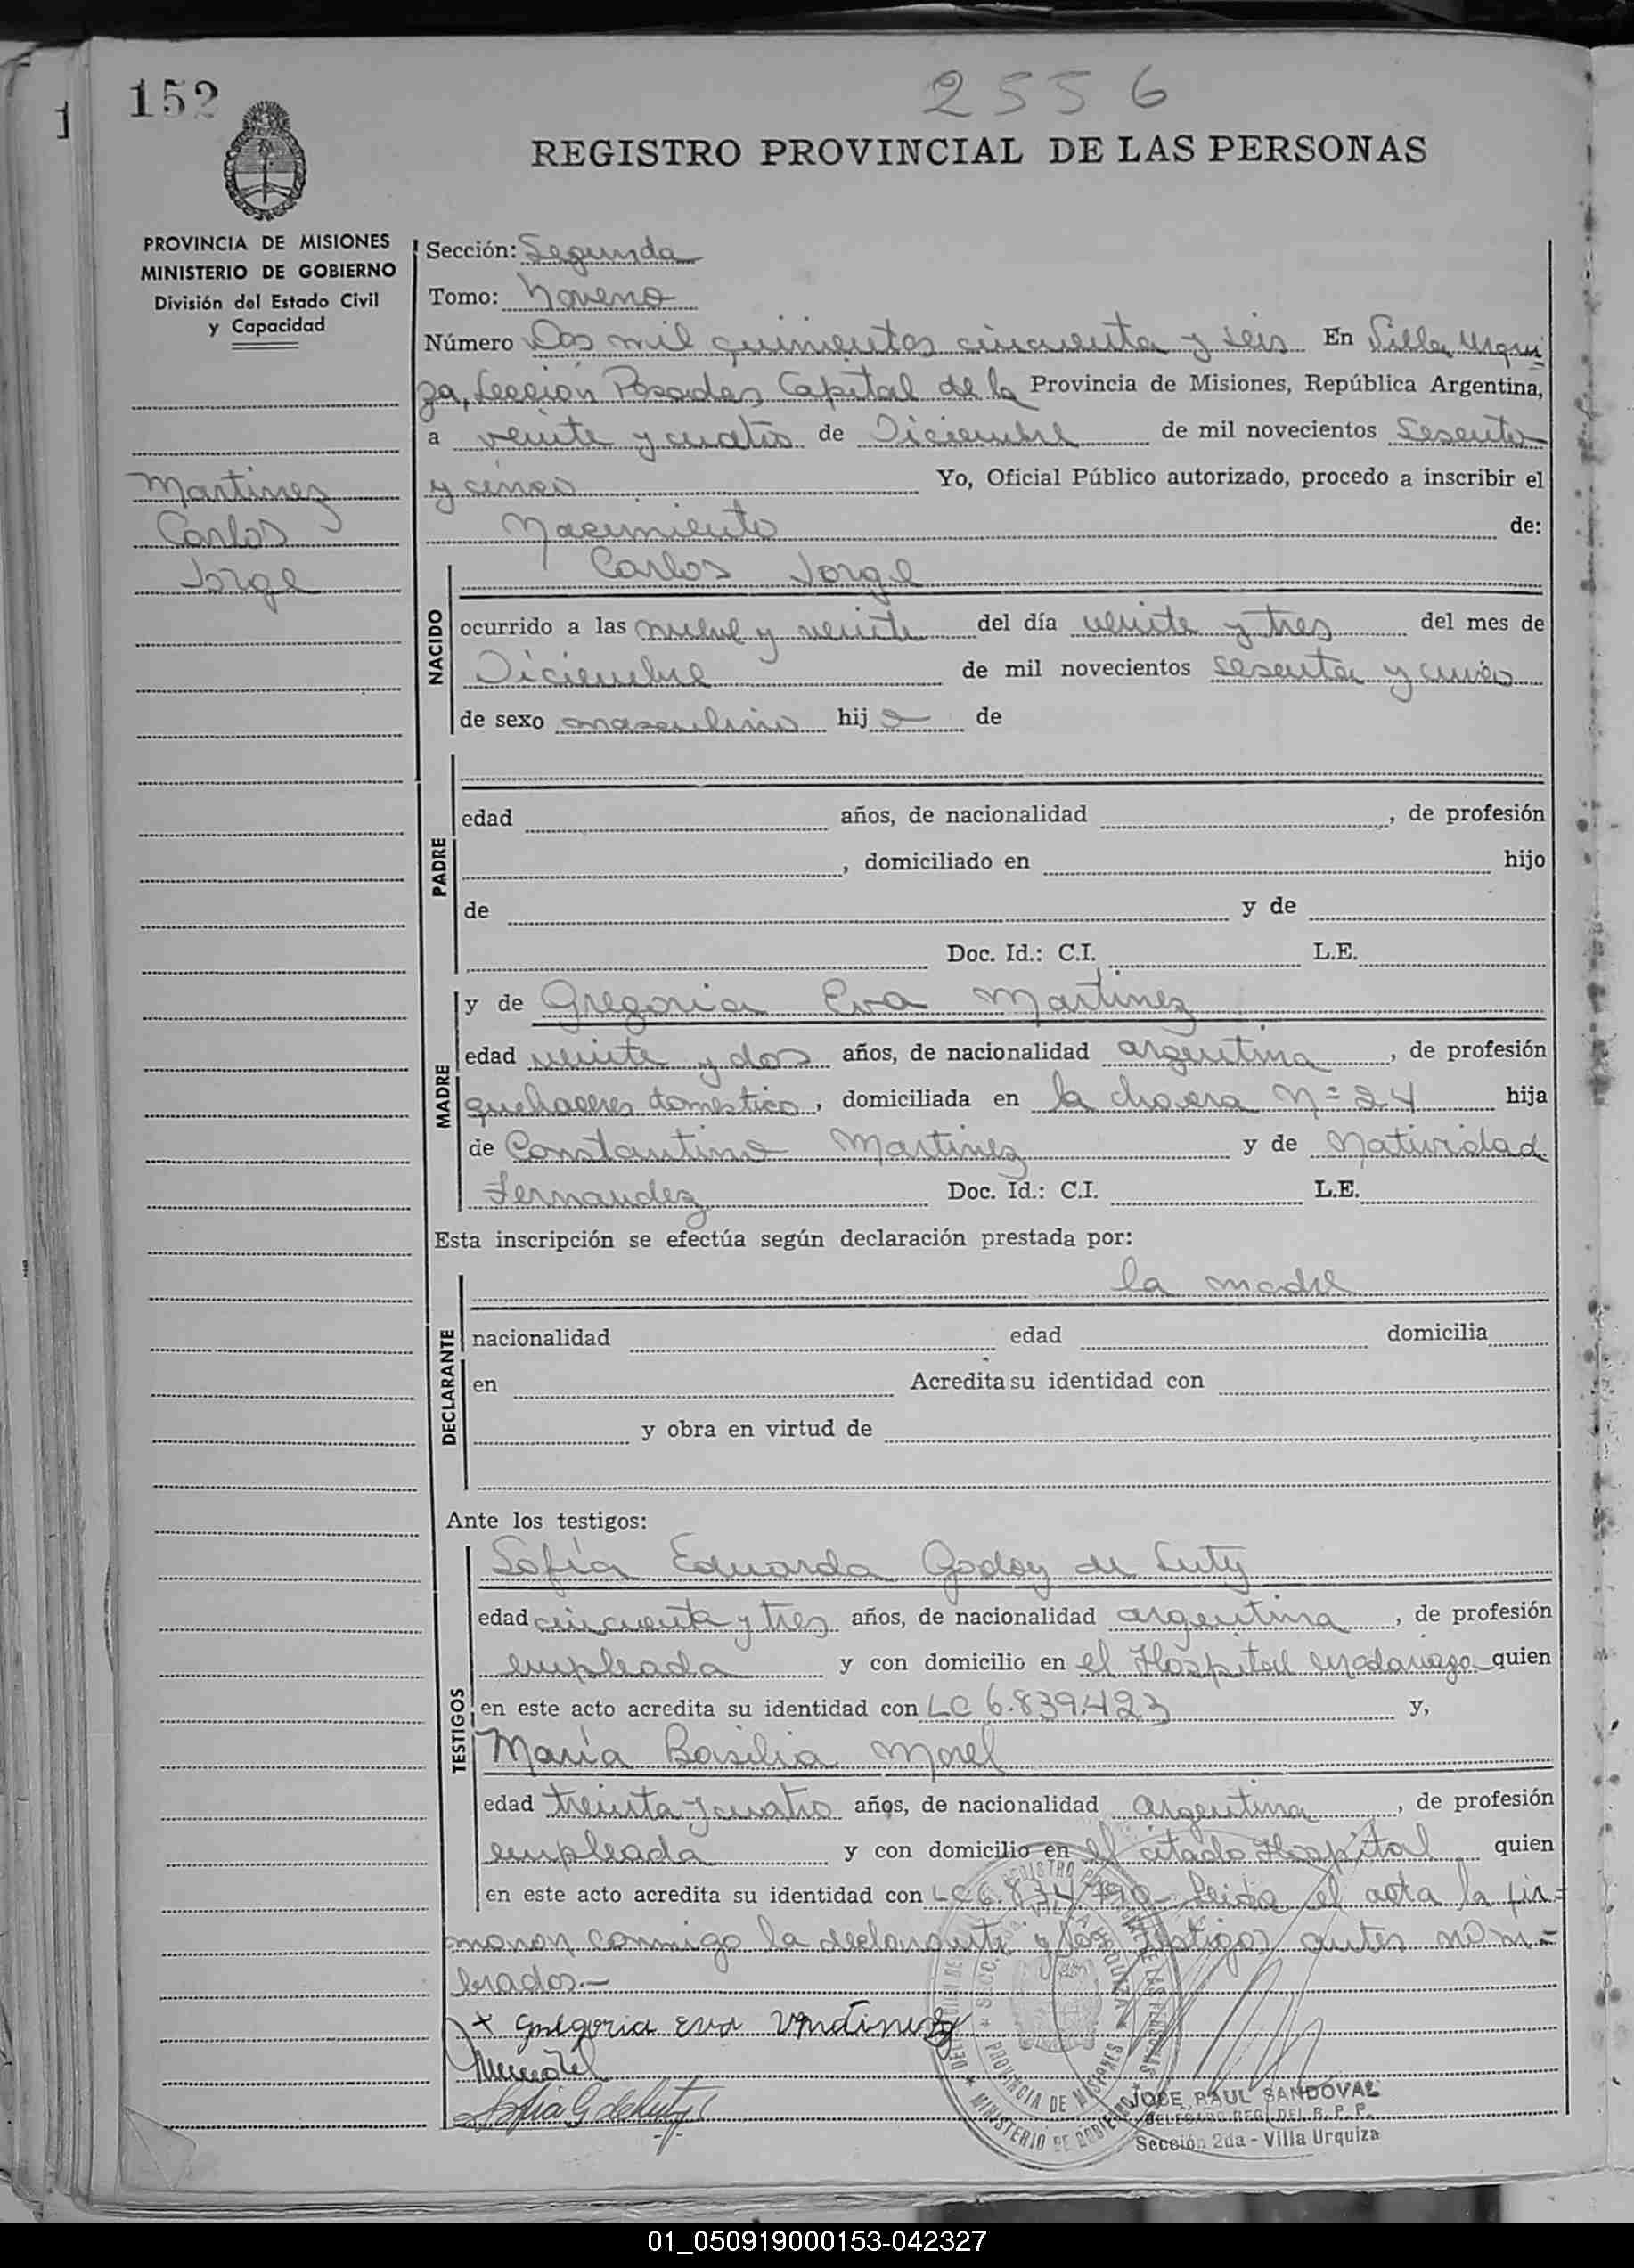 152
2556
REGISTRO PROVINCIAL DE LAS PERSONAS
1
PROVINCIA DE MISIONES
MINISTERIO DE GOBIERNO
División del Estado Civil
y Capacidad
Martinez
Carlos
Jorge
Sección: Segunda
Tomo: Noveno
Número Dos mil quinientos cincuenta y seis En Villa Urqui
za, Sección Posadas Capital de la Provincia de Misiones, República Argentina,
a veinte y cuatro de Diciembre de mil novecientos Sesenta
y cinco Yo, Oficial Público autorizado, procedo a inscribir el
Nacimiento de:
NACIDO
Carlos Jorge
ocurrido a las nueve y veinte del día veinte y tres del mes de
Diciembre de mil novecientos sesenta y cinco
de sexo masculino hijo de
PADRE
edad años, de nacionalidad , de profesión
, domiciliado en hijo
de y de
Doc. Id.: C.I. L.E.
MADRE
y de Gregoria Eva Martinez
edad veinte y dos años, de nacionalidad argentina , de profesión
quehaceres domestico , domiciliada en la chacra Nº 24 hija
de Constantino Martinez y de Natividad
Fernandez Doc. Id.: C.I. L.E.
Esta inscripción se efectúa según declaración prestada por:
DECLARANTE
la madre
nacionalidad edad domicilia
en Acredita su identidad con
y obra en virtud de
Ante los testigos:
TESTIGOS
Sofía Eduarda Godoy de Luty
edad cincuenta y tres años, de nacionalidad argentina , de profesión
empleada y con domicilio en el Hospital Madariaga quien
en este acto acredita su identidad con LC 6.839.423 y,
María Basilia Morel
edad treinta y cuatro años, de nacionalidad argentina , de profesión
empleada y con domicilio en el citado Hospital quien
en este acto acredita su identidad con LC Leida el acta la fir=
maron conmigo la declarante y los testigos antes nom=
brados.-
x Gregoria Eva Martinez
Sofia G de Luty
MINISTERIO DE GOBIERNO
PROVINCIA DE MISIONES
JOSE RAUL SANDOVAL
DELEGADO REG. DEL R. P. P.
Sección 2da - Villa Urquiza
01_050919000153-042327